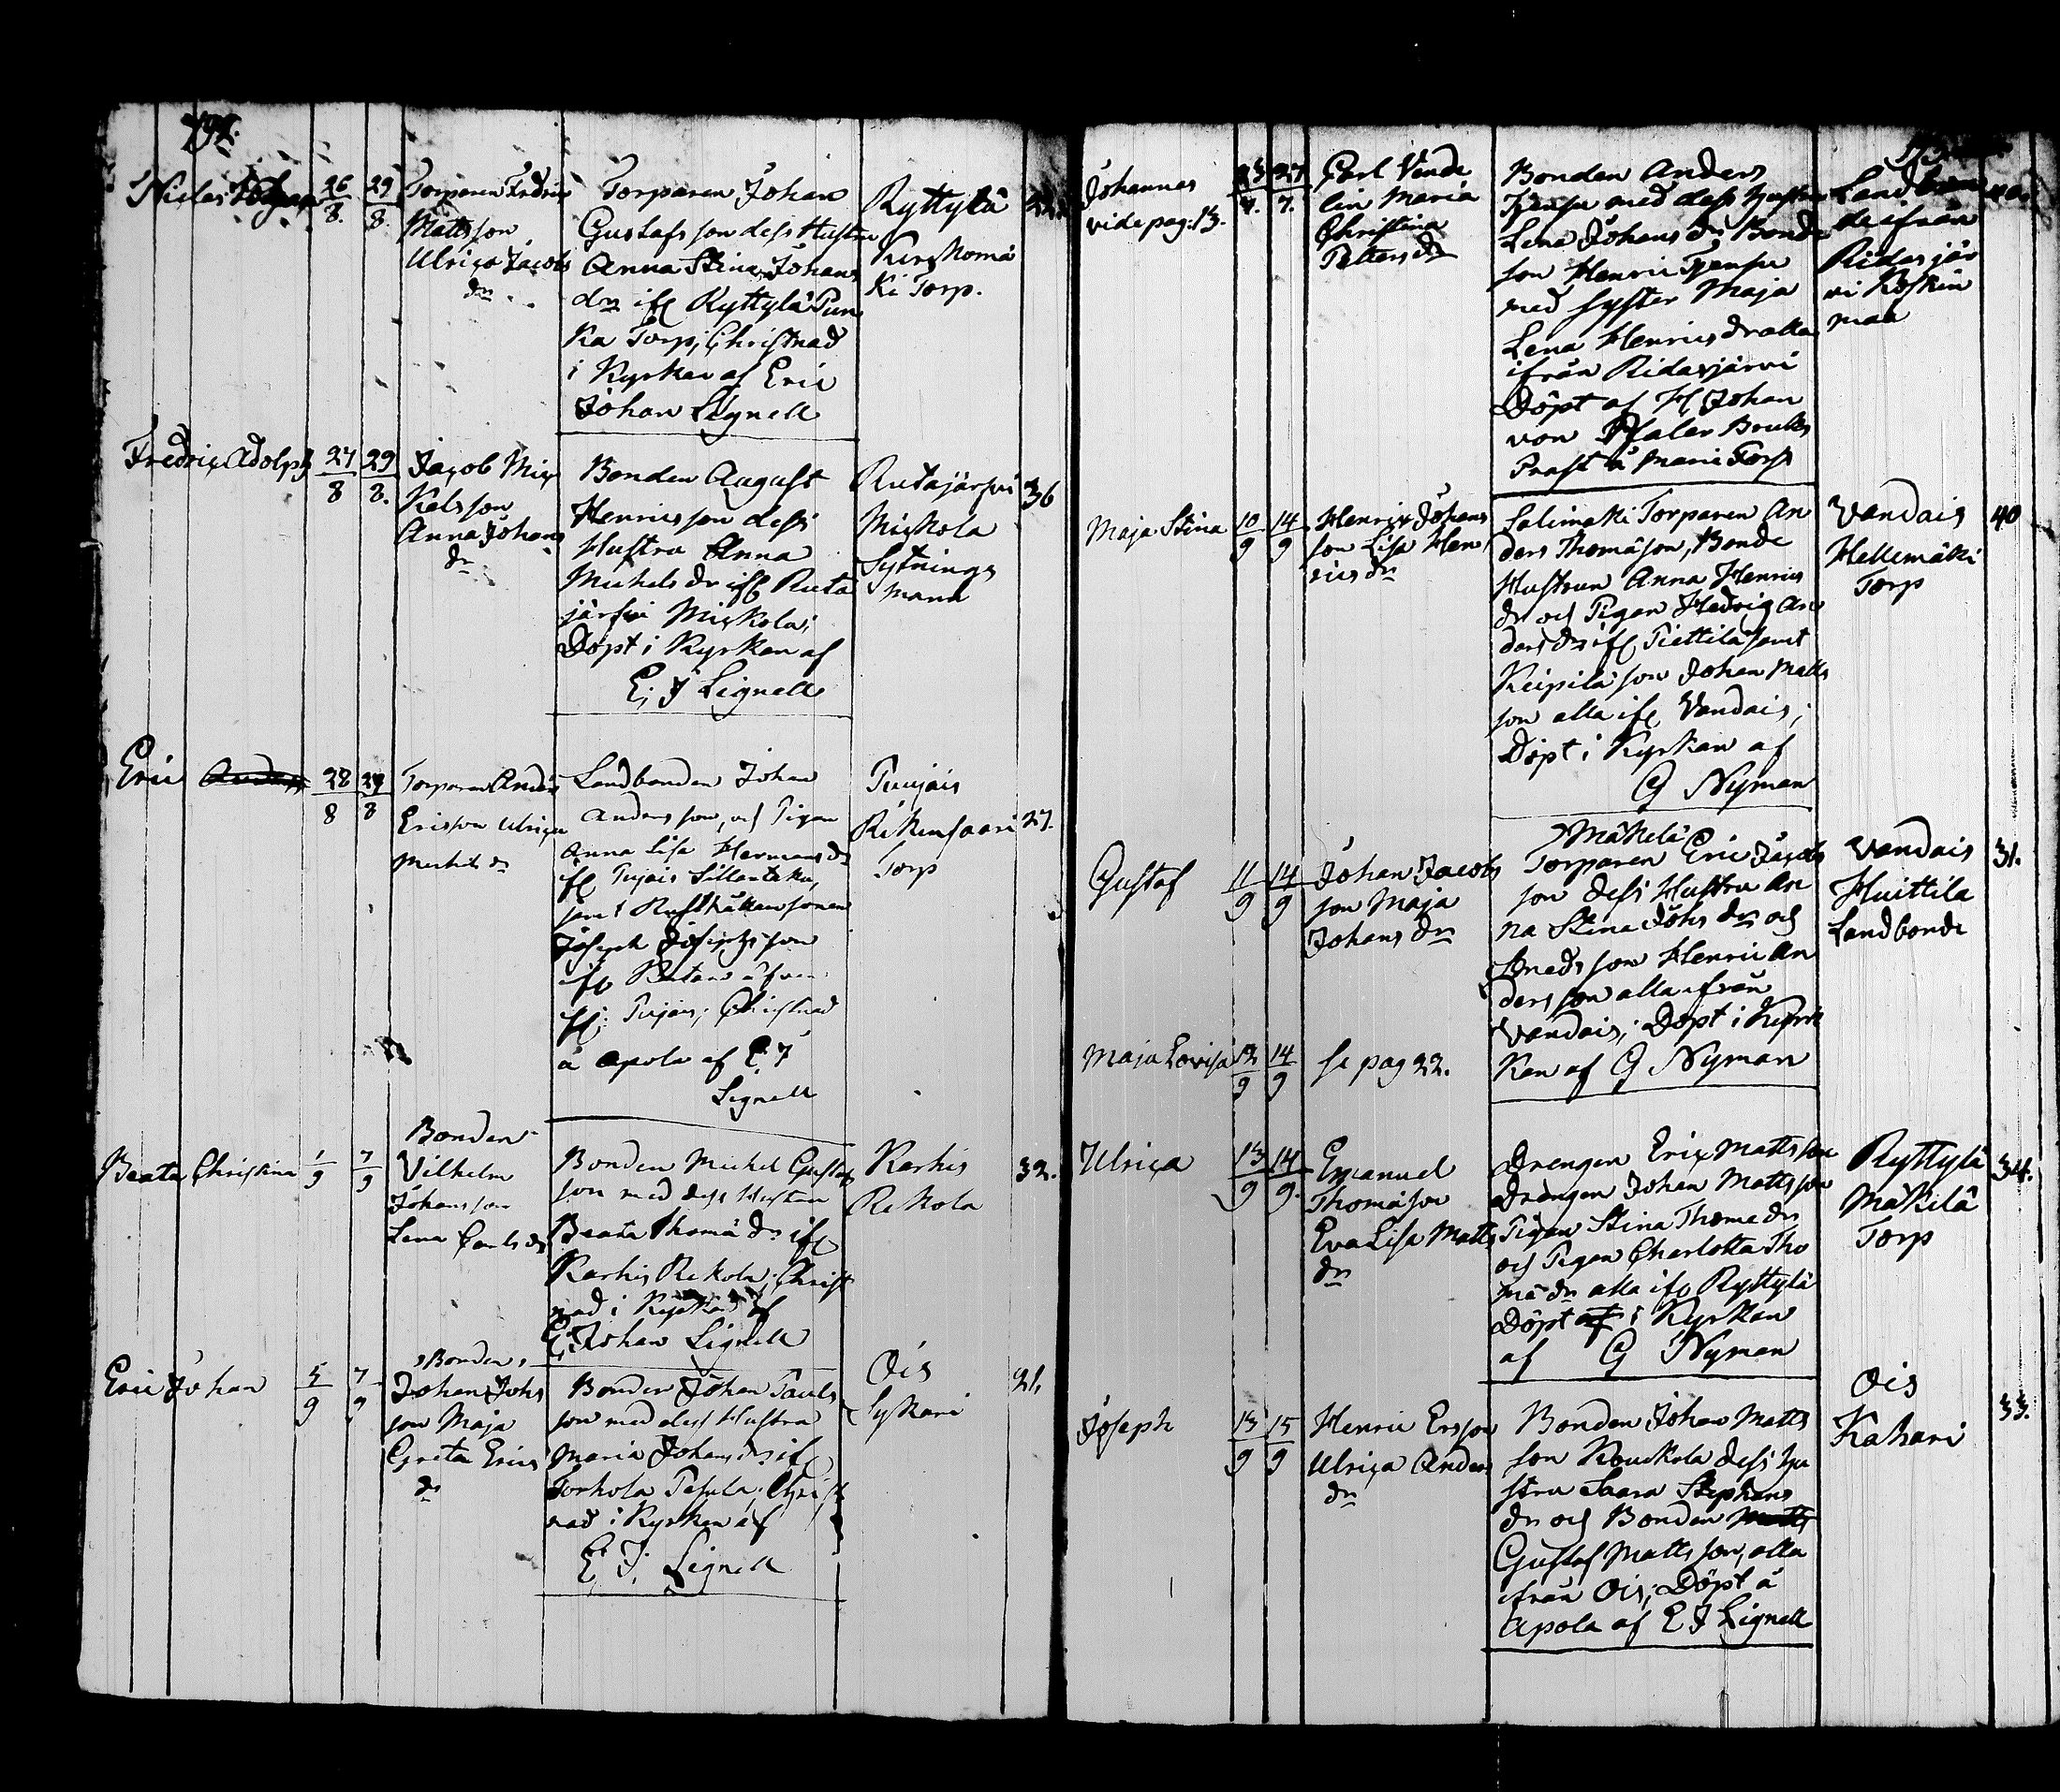 Niclas
26/8. 29/8.
Torparen Fredric
Mattsson
Ulrica Jacobs
dr
Torparen Johan
Gustafsson dess Hustru
Anna Stina Johans
dr ifr Ryttylä Pun
ka Torp; Christnad
i Kyrkan af Eric
Johan Lignell
Ryttylä
Ki Torp.
Fredric Adolph
27/8 29/8.
Jacob Mic
kelsson
Anna Johans
dr
Bonden August
Henricsson dess
Hustru Anna
Michels dr ifr Ruta
järfwi Mickola;
Döpt i Kyrkan af
E; J Lignell
Rutajärfwi
Mickola
Sytnings
mann
36
Eric
28/8 29/8
Torparen Anders
Ersson Ulrica
Michels dr
Landbonden Johan
Andersson, och Pigan
Anna Lisa Hermans dr
ifr Pujais Sillantaka,
samt Rusthållaresonen
Joseph Josephsson
ifr
ifr. Pujais; Christnad
å Apola af E. J
Lignell
Puujais
Rikunsaari
Torp
27.
Beata Christina
1/9 7/9
Bonden
Vilhelm
Johansson
Lena Carls dr
Bonden Michel Gustafs
son med dess Hustru
Beata Thomä dr ifr
Karhis Rekola; Christ
nad i Kyrkan af
E; Johan Lignell
Karhis
Rekola
32.
Eric Johan
5/9 7/9
Bonden
Johan Johs
son Maja
Greta Erics
dr
Bonden Johan Pauls
son med dess Hustru
Maria Johans dr ifr
Torhola Pesula; Christ
nad i Kyrkan af
E. J. Lignell
Ois
Syskari
21.
Johannes
vide pag. 13.
23/7. 27/7.
Carl Vende
lin Maria
Christina
Petters dr
Bonden Anders
med dess Hustru
Lena Johans dr Bonde
son Henric
med Syster Maja
Lena Henrics dr alla
ifrån Ridasjärvi
Döpt af H Johan
von Pfaler Bruks
Prast å Marie Torp
deifrån
Ridasjär
vi Koskin
maa
Maja Stina
10/9 14/9
Henric Johans
son Lisa Hen
rics dr
Salimäki Torparen An
ders Thomäson, Bonde
Hustrun Anna Henrics
dr och Pigan Hedvig An
ders dr ifr Piettilä samt
Keipilä son Johan Matts
son alla ifr Vandais;
Döpt i Kyrkan af
G Nyman
Vandais
Hellemäki
Torp
40
Gustaf
11/9 14/9
Johan Jacobs
son Maja
Johans dr
Mäkelä
Torparen Eric Jacobs
son dess Hustru An
na Stina Johs dr och
Smeds son Henric An
dersson alla ifrån
Vandais; Döpt i Kyrk
kan af G Nyman
Vandais
Huittila
Landbonde
31.
Maja Lovisa
12/9 14/9
se pag 22.
Ulrica
13/9 14/9.
Emanuel
Thomäson
Eva Lisa Matts
dr
Drengen Eric Mattsson
Drengen Johan Mattsson
Pigan Stina Thome dr
och Pigan Charlotta Tho
mä dr alla ifr Ryttylä
Döpt i Kyrkan
af G Nyman
Ryttylä
Mäkilä
Torp
34.
Joseph
13/9 15/9
Henric Ersson
Ulrica Anders
dr
Bonden Johan Matts
son Kouckola dess Hu
stru Saara Stephans
dr och Bonden Matts
Gustaf Mattsson, alla
ifrån Ois; Döpt å
Apola af E J Lignell
Ois
Kahari
33.